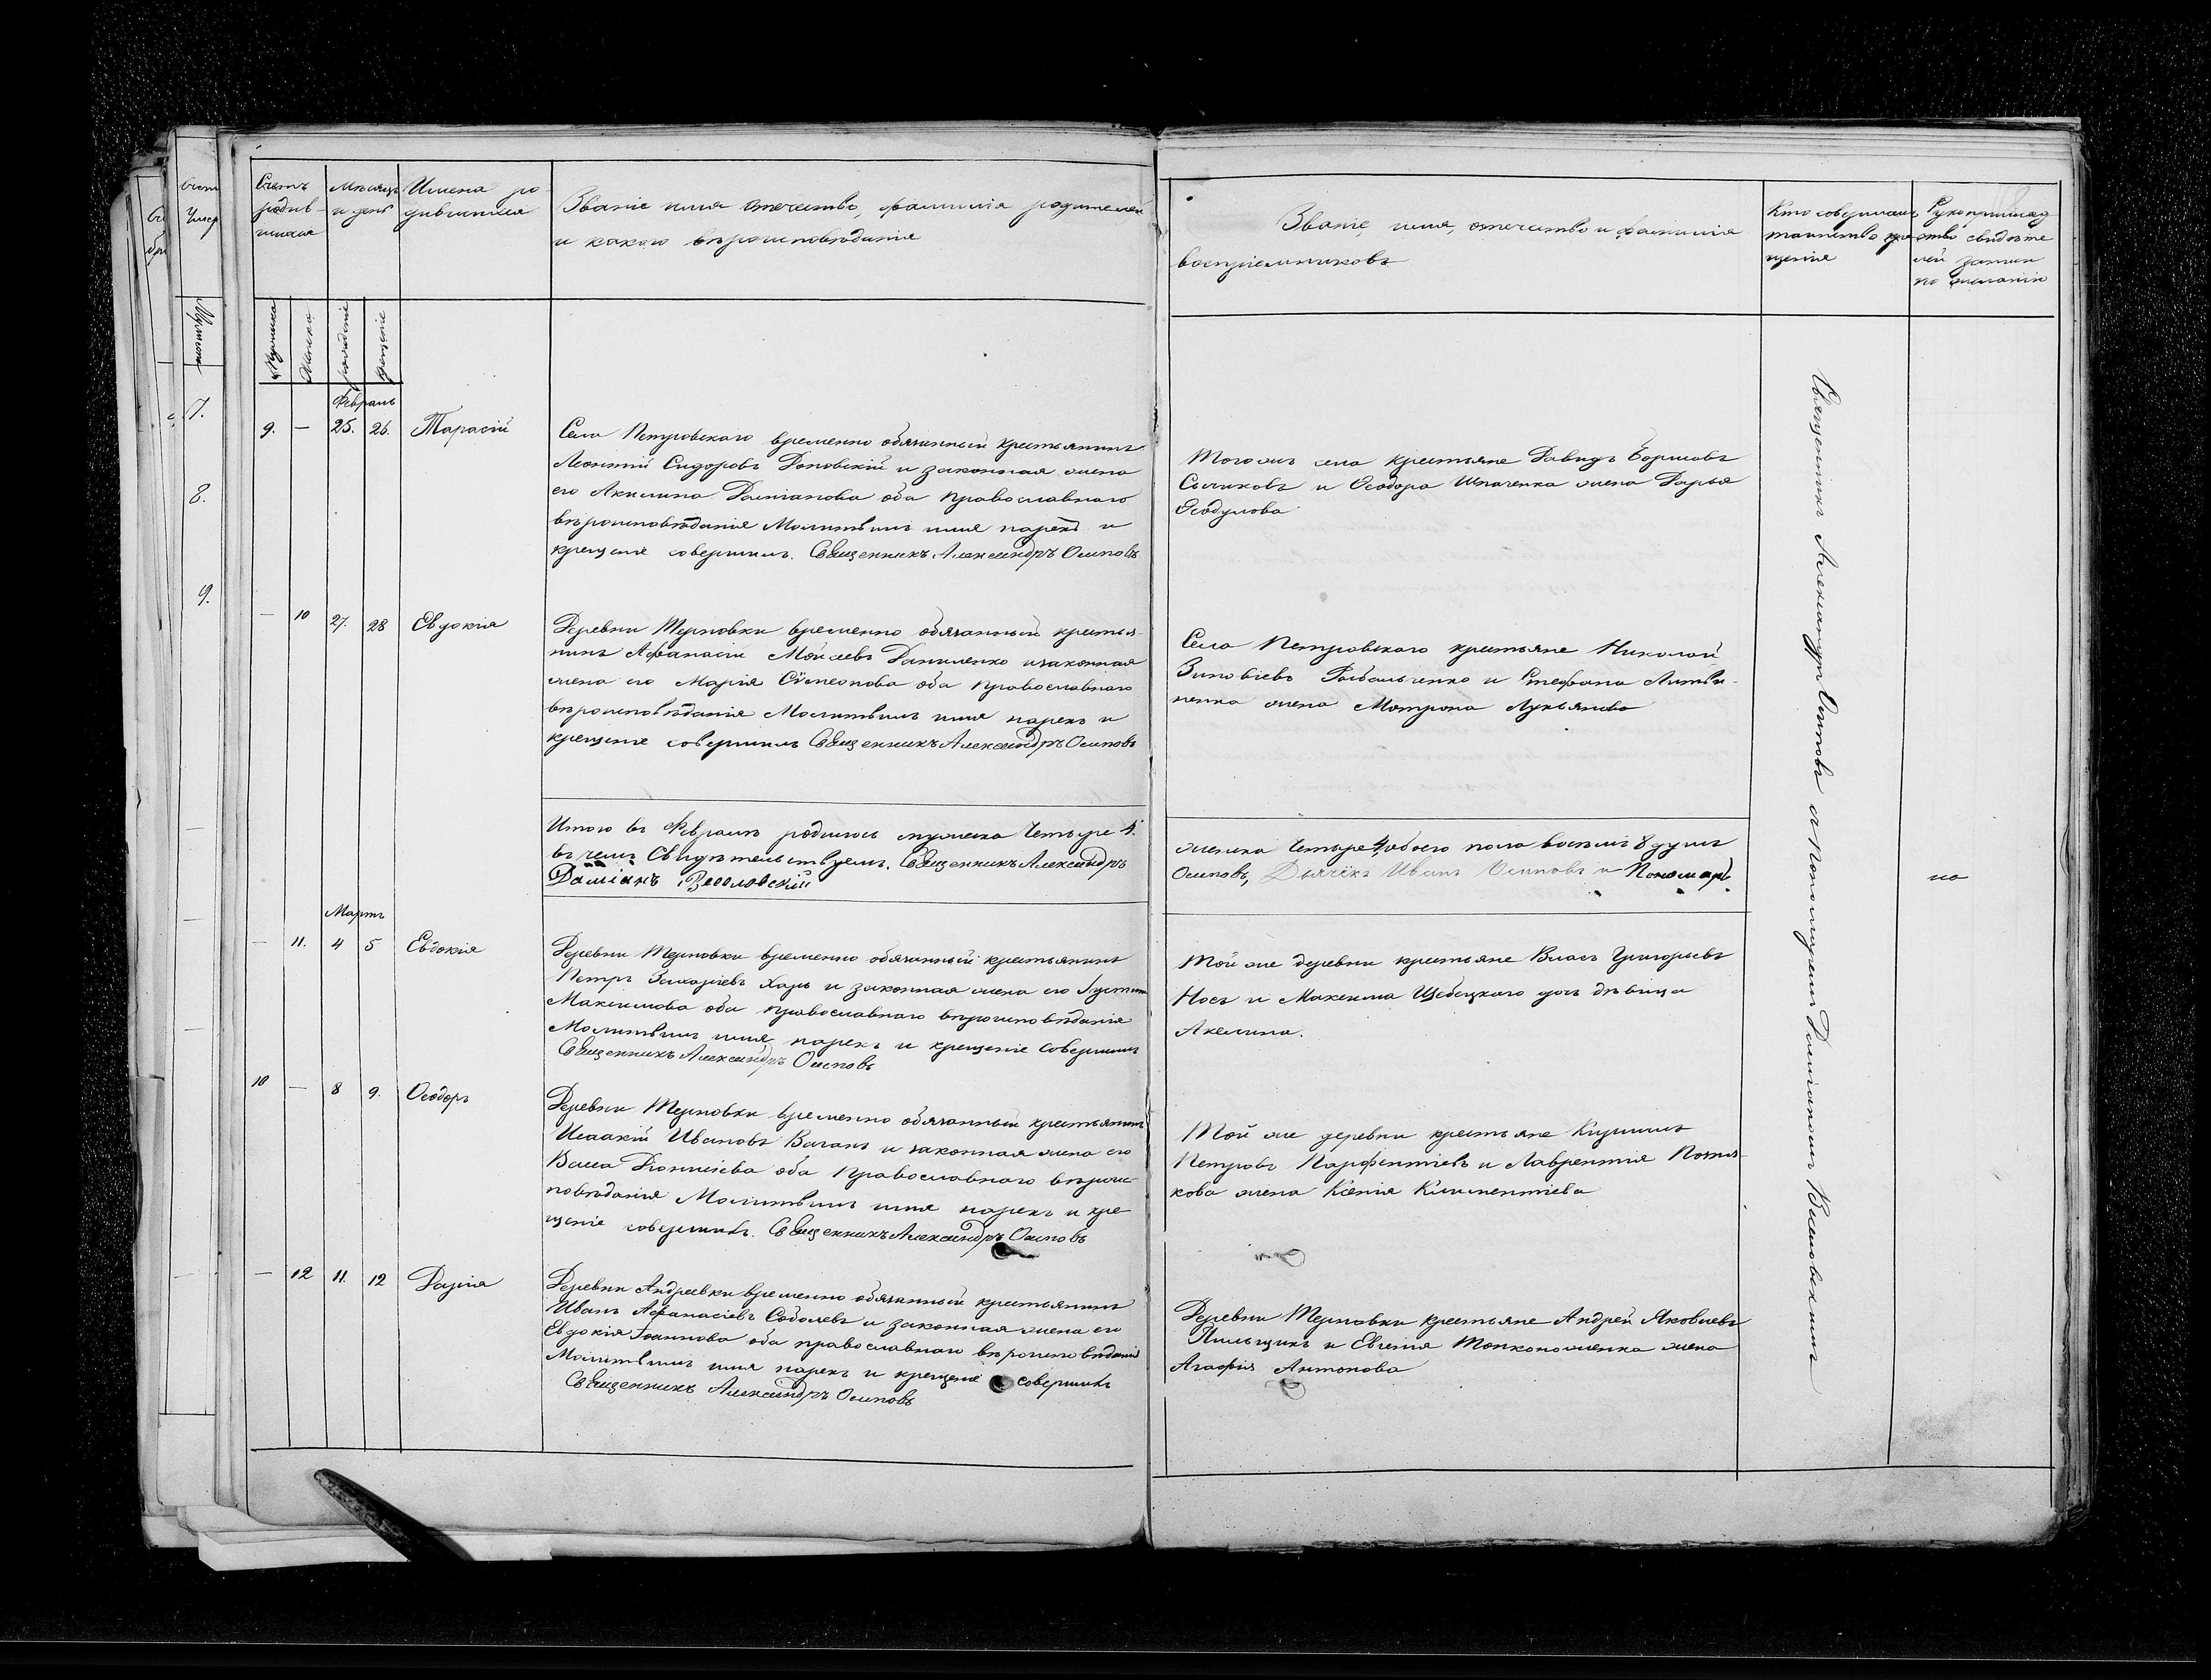 Счетъ родив-
шихся
Мѣсяцъ и день
Имена ро-
дившихся
Званіе имя отечество, фамилія родителей
и какого вѣроисповѣданія
Званіе, имя, отечество и фамилія
воспріемниковъ
Кто совершалъ
таинство кре
щенія
Рукоприклад
ство свидѣте
лей записи
по желанію
Мужска
Женска
рожденіе
крещеніе
Февраль
9. — 25. 26. Тарасій
Села Петровскаго временно обязанный крестьянинъ
Леонтій Сидоровъ и законная жена
его Акилина Даміанова оба православнаго
вѣроисповѣданія Молитвилъ имя нарекъ и
крещеніе совершилъ. Священникъ Александръ Осиповъ
Того жъ села крестьяне Давидъ Борисовъ
и Ѳеодора жена Дарья
Ѳеодулова
— 10 27. 28 Евдокія
Деревни Терновки временно обязанный крестья-
нинъ Афанасій Мойсеевъ Даниленко и законная
жена его Марія Сѵмеонова оба православнаго
вѣроисповѣданія Молитвилъ имя нарекъ и
крещеніе совершилъ Священникъ Александръ Осиповъ
Села Петровского крестьяне Николай
Зиновіевъ Рыбальченко и Стефана Литви-
ненка жена Мотрона Лукьянова
Итого въ Февралѣ родилось мужеска Четыре 4.
женска Четыре 4, обоего пола восемь 8 душъ
въ чемъ Свидѣтельствуемъ. Священникъ Александръ
Осиповъ, Дьячекъ Иванъ Осиповъ и Пономарь
Даміанъ Веселовскій
Мартъ
— 11. 4 5 Евдокія
Деревни Терновки временно обязанный крестьянинъ
Петръ Захаріевъ Харь и законная жена его
Максимова оба православнаго вѣроисповѣданія
Молитвилъ имя нарекъ и крещеніе Совершилъ
Священникъ Александръ Осиповъ
Той же деревни крестьяне Власъ Григорьевъ
Носъ и Максима дочь дѣвица
Акелина.
10 — 8 9. Ѳеодоръ
Деревни Терновки временно обязанный крестьянинъ
Исаакій Ивановъ и законная жена его
Васса Діонисіева оба Православнаго вѣроис-
повѣданія Молитвилъ имя нарекъ и кре
щеніе совершилъ. Священникъ Александръ Осиповъ
Той же деревни крестьяне Кирилъ
Петровъ Парфентіевъ и Лаврентія
кова жена Ксенія Климентіева
— 12 11. 12 Дарія
Деревни Андреевки временно обязанный крестьянинъ
Иванъ Афанасіевъ Соболевъ и законная жена его
Евдокія Іоаннова оба православнаго вѣроисповѣданія
Молитвилъ имя нарекъ и крещеніе совершилъ
Священникъ Александръ Осиповъ
Деревни Терновки крестьяне Андрей Яковлевъ
Пильщикъ и Евгенія Тонконоженка жена
Агафія Антонова
Священникъ Александръ Осиповъ съ Пономаремъ Даміаномъ Веселовскимъ
7.
8.
9.